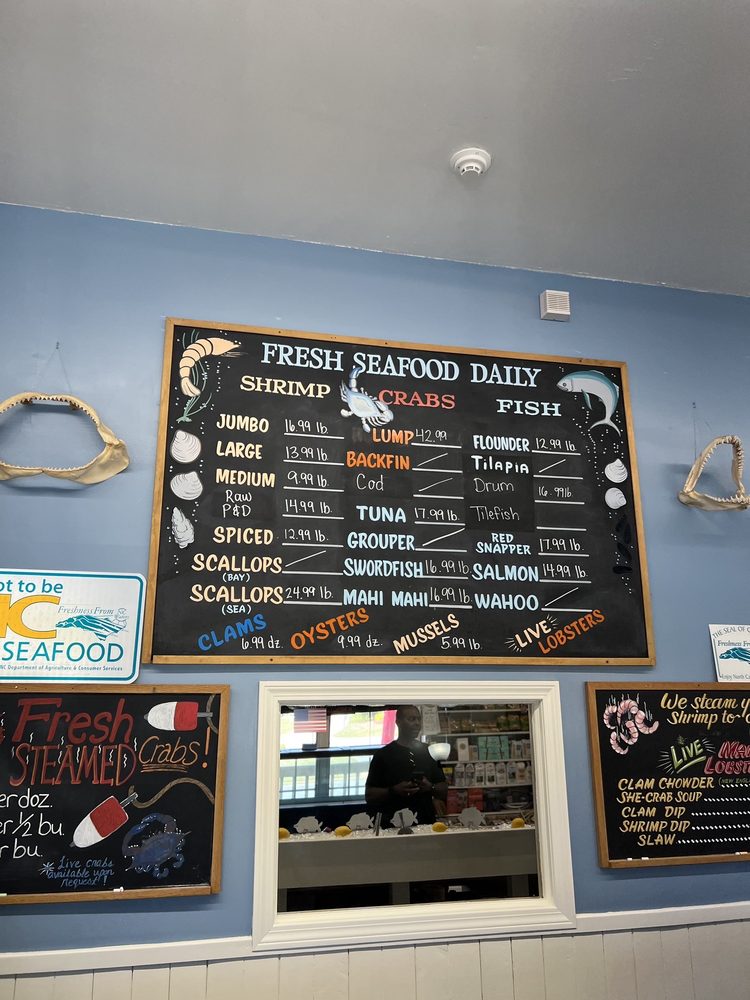 FRESH SEAFOOD DAILY
SHRIMP
JUMBO 16.99 lb.
LARGE 13.99 lb.
MEDIUM 9.99 lb.
Raw
P&D 14.99 lb.
SPICED 12.99 lb.
SCALLOPS
(BAY)
SCALLOPS 24.99 lb.
(SEA)
CRABS
LUMP 42.99
BACKFIN
Cod
TUNA 17.99 lb.
GROUPER
SWORDFISH 16.99 lb.
MAHI MAHI 16.99 lb.
FISH
FLOUNDER 12.99 lb.
Tilapia
Drum
16.99lb
Tilefish
RED
SNAPPER 17.99 lb.
SALMON 14.99 lb.
WAHOO
CLAMS 6.99 dz.
OYSTERS 9.99 dz.
MUSSELS 5.99 lb.
LIVE
LOBSTERS
ot to be
NC
Freshness From
SEAFOOD
NC Department of Agriculture & Consumer Services
Fresh
STEAMED Crabs!
er doz.
er 1/2 bu.
r bu.
Live crabs
available upon
request!
THE SEAL OF
Freshness Fr
We steam y
Shrimp to
LIVE
LOBST
CLAM CHOWDER
SHE-CRAB SOUP
CLAM DIP
SHRIMP DIP
SLAW